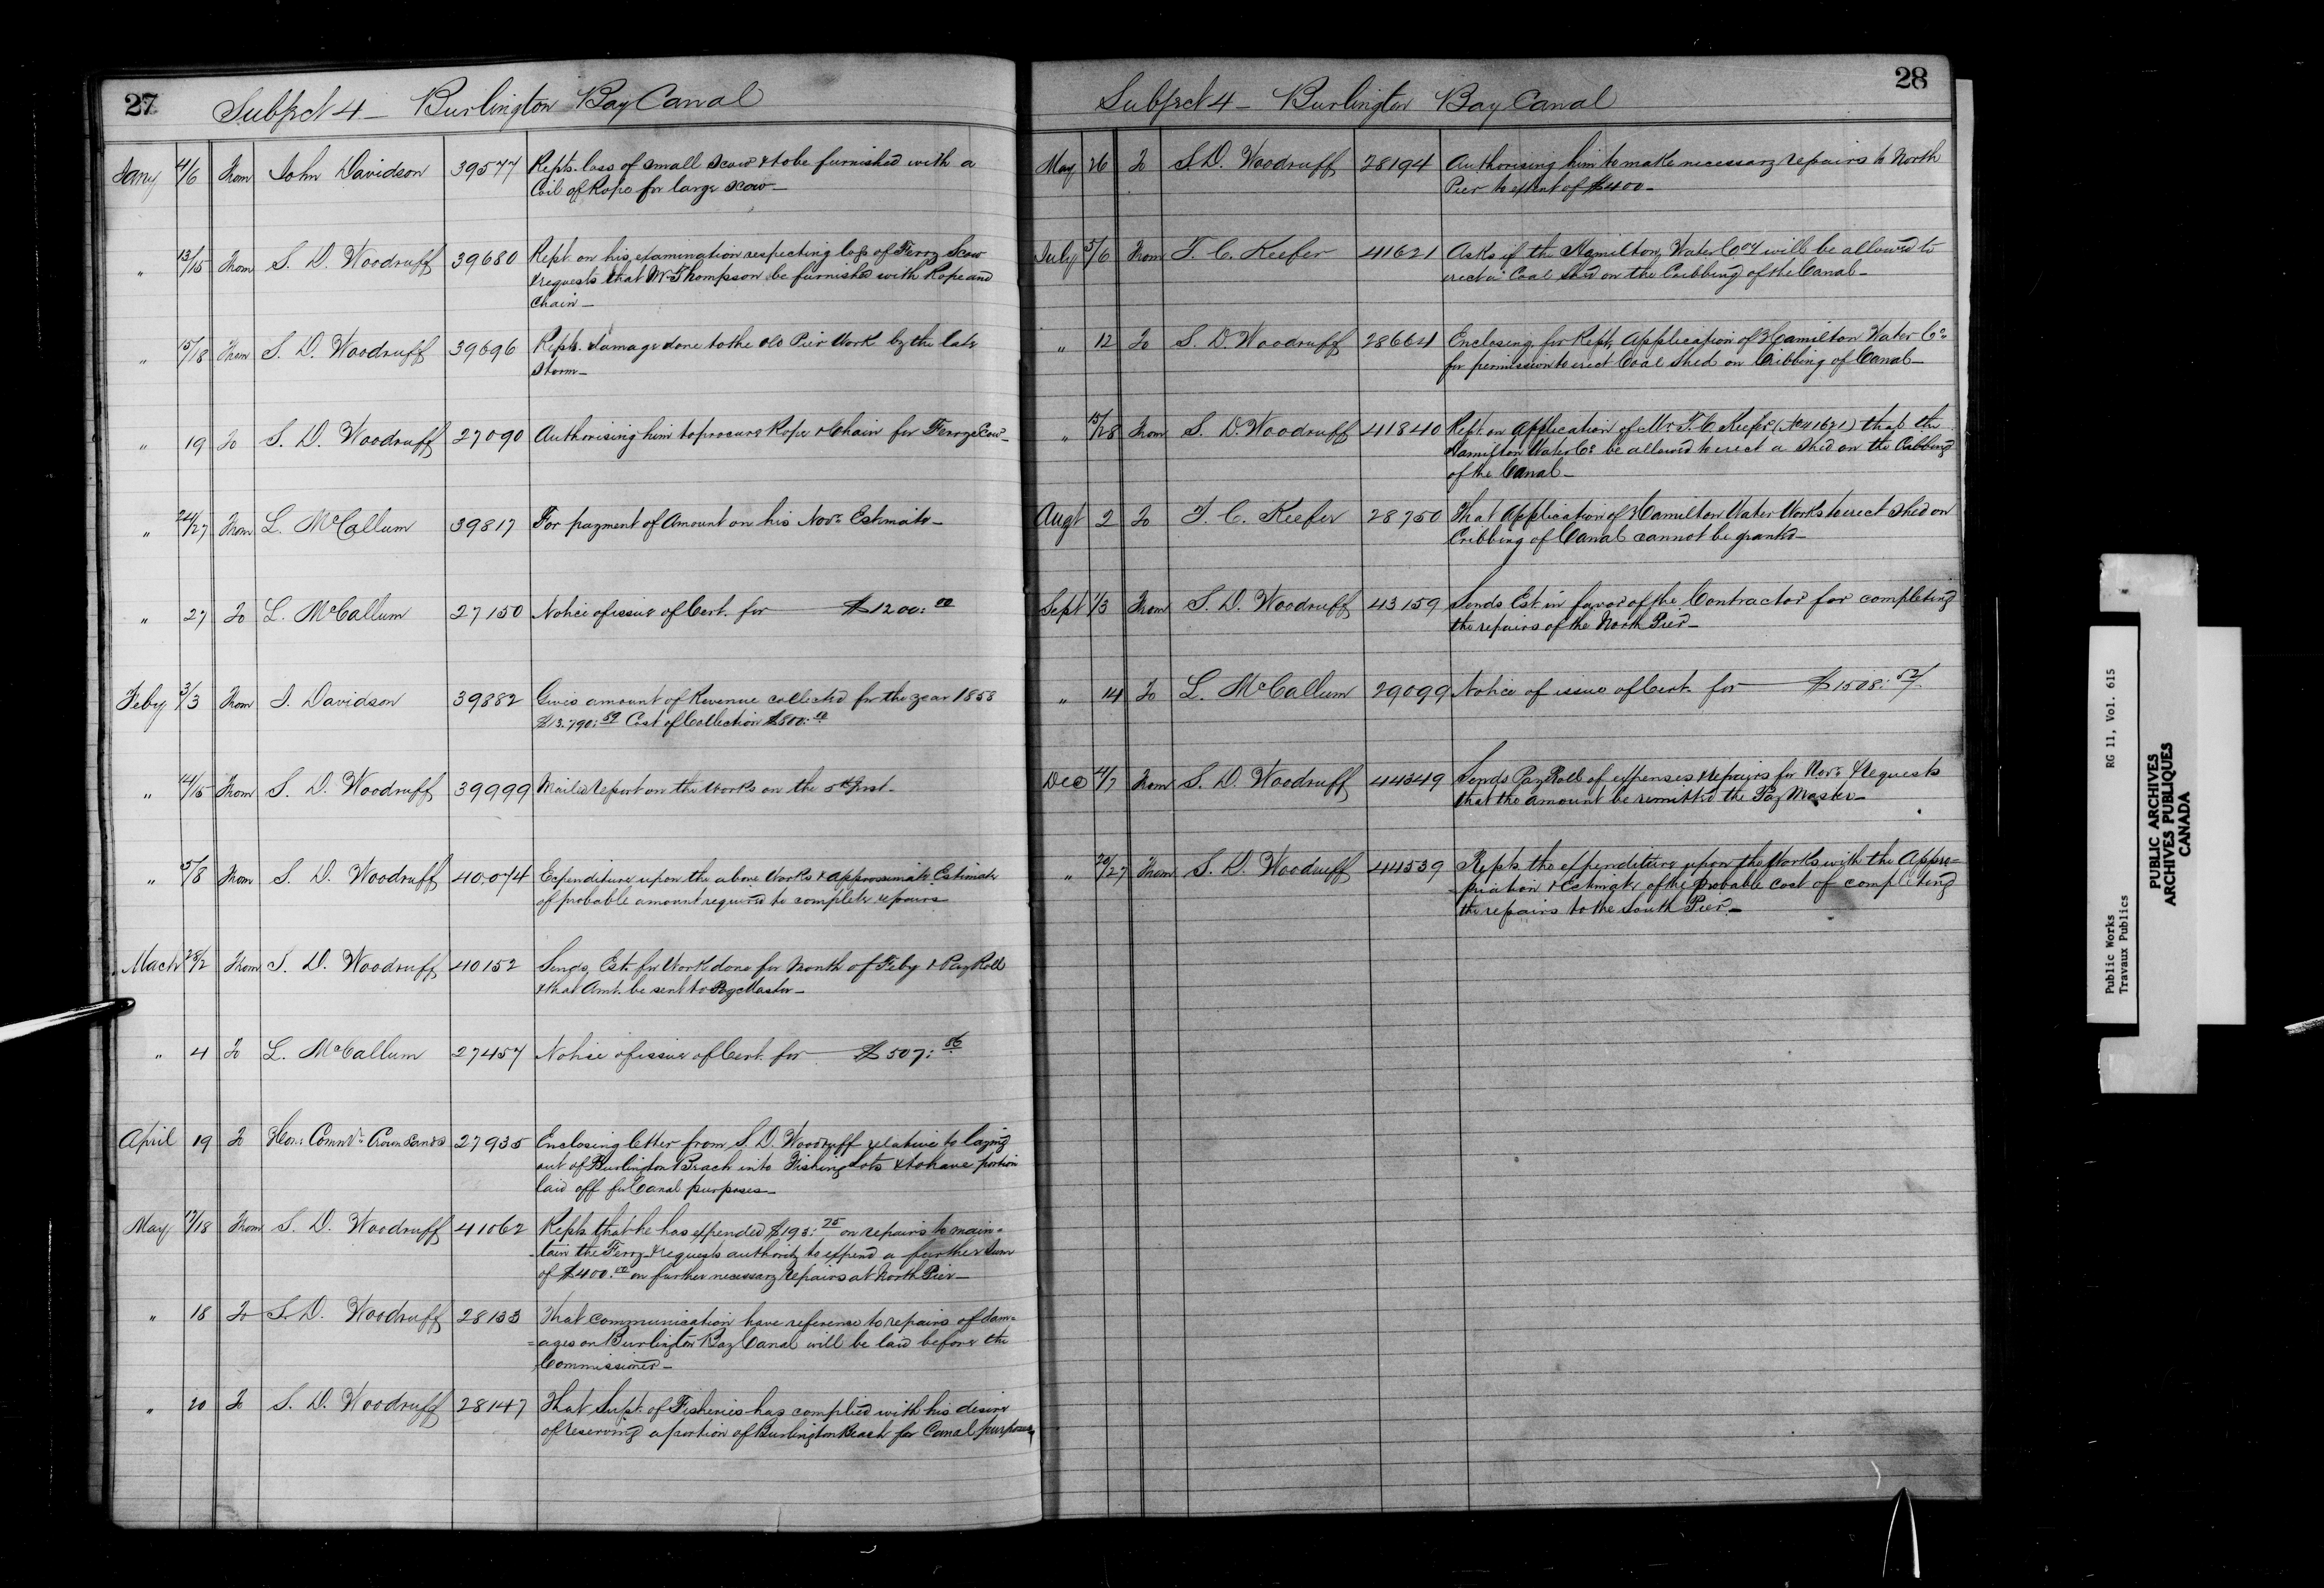 27 Subject 4 - Burlington Bay Canal
Jany 4/6 From John Davidson 39577 Repts. loss of small Scow & to be furnished with a
Coil of Rope for large Scow -
" 13/15 From S. D. Woodruff 39680 Rept. on his examination respecting loss of Ferry Scow
& requests that Mr Thompson be furnished with Rope and
Chain -
" 15/18 From S. D. Woodruff 39696 Repts. damage done to the old Pier Work by the late
Storm -
" 19 To S. D. Woodruff 27090 Authorising him to procure Rope & Chain for Ferry Scow -
" 24/27 From L. McCallum 39817 For payment of Amount on his Novr. Estimate -
" 27 To L. McCallum 27150 Notice of issue of Cert. for $1200:00
Feby 3/3 From J. Davidson 39882 Gives amount of Revenue collected for the year 1858
$13.790:59 Cost of Collection $500:00
" 14/15 From S. D. Woodruff 39999 Mailed Report on the Works on the 5th Inst -
" 5/8 From S. D. Woodruff 40.074 Expenditure upon the above Works & approximate Estimate
of probable amount required to complete repairs
March 28/2 From S. D. Woodruff 40152 Sends Est. for Work done for Month of Feby & Pay Roll
& that Amt. be sent to PayMaster -
" 4 To L. McCallum 27457 Notice of issue of Cert. for $507:56
April 19 To Hon: Commr. Crown Lands 27935 Enclosing letter from S. D. Woodruff relative to laying
out of Burlington Beach into Fishing Lots & to have portion
laid off for Canal purposes -
May 17/18 From S. D. Woodruff 41062 Repts. that he has expended $193:75 on repairs to main=
=tain the Ferry & requests authority to expend a further Sum
of $400.00 on further necessary repairs at North Pier -
" 18 To S. D. Woodruff 28133 That communication have reference to repairs of dam=
=ages on Burlington Bay Canal will be laid before the
Commissioner -
" 20 To S. D. Woodruff 28147 That Supt. of Fisheries has complied with his desire
of reserving a portion of Burlington Beach for Canal purposes
Subject 4 - Burlington Bay Canal 28
May 26 To S. D. Woodruff 28194 Authorising him to make necessary repairs to North
Pier to extent of $400 -
July 5/6 From T. C. Keefer 41621 Asks if the Hamilton Water Coy will be allowed to
erect a Coal Shed on the Cribbing of the Canal -
" 12 To S. D. Woodruff 28664 Enclosing for Rept. Application of Hamilton Water Co.
for permission to erect Coal Shed on Cribbing of Canal -
" 15/28 From S. D. Woodruff 41840 Rept. on Application of Mr T. C. Keefer (No 41621) that the
Hamilton Water Co. be allowed to erect a Shed on the Cribbing
of the Canal -
Augt 2 To T. C. Keefer 28750 That Application of Hamilton Water Works to erect Shed on
Cribbing of Canal cannot be granted -
Sept 1/3 From S. D. Woodruff 43159 Sends Est. in favor of the Contractor for completing
the repairs of the North Pier -
" 14 To L. McCallum 29099 Notice of issue of Cert. for $1508:52
Dec 4/7 From S. D. Woodruff 44349 Sends Pay Roll of expenses & repairs for Novr. & Requests
that the amount be remitted the Pay Master -
" 20/27 From S. D. Woodruff 44539 Repts. the expenditure upon the Works with the Appro=
=priation & Estimate of the probable cost of completing
the repairs to the South Pier -
Public Works RG 11, Vol. 615
Travaux Publics
PUBLIC ARCHIVES
ARCHIVES PUBLIQUES
CANADA